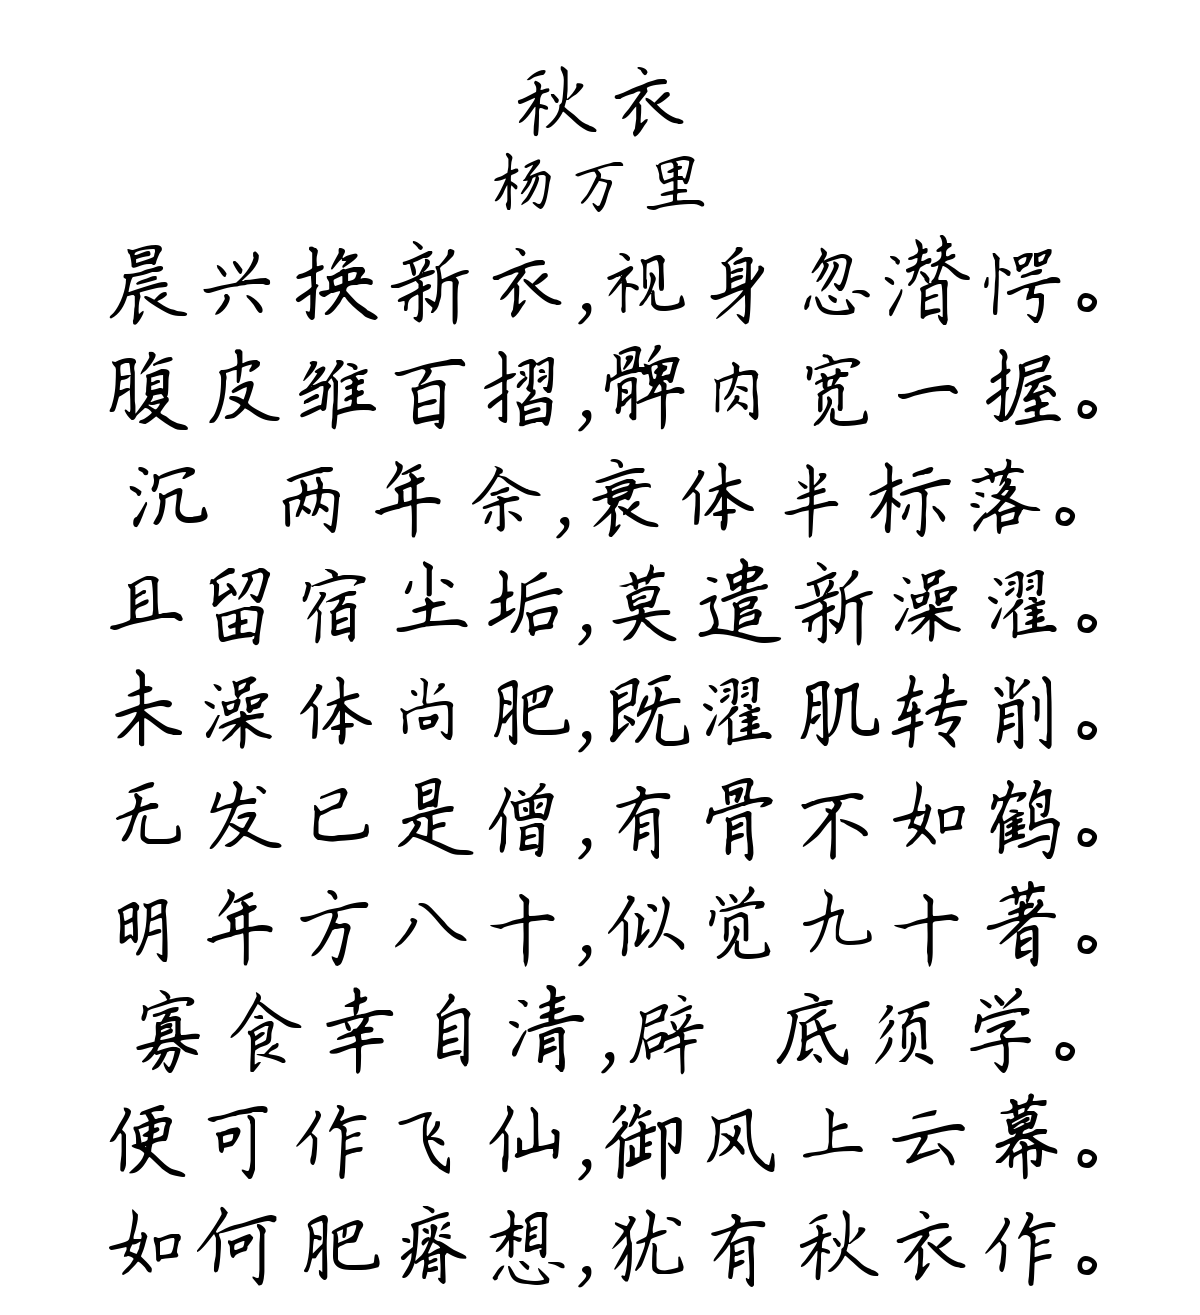 秋衣
杨万里
晨兴换新衣,视身忽潜愕。
腹皮雏百摺,髀肉宽一握。
沉 两年余,衰体半标落。
且留宿尘垢,莫遣新澡濯。
未澡体尚肥,既濯肌转削。
无发已是僧,有骨不如鹤。
明年方八十,似觉九十著。
寡食幸自清,辟 底须学。
便可作飞仙,御风上云幕。
如何肥瘠想,犹有秋衣作。